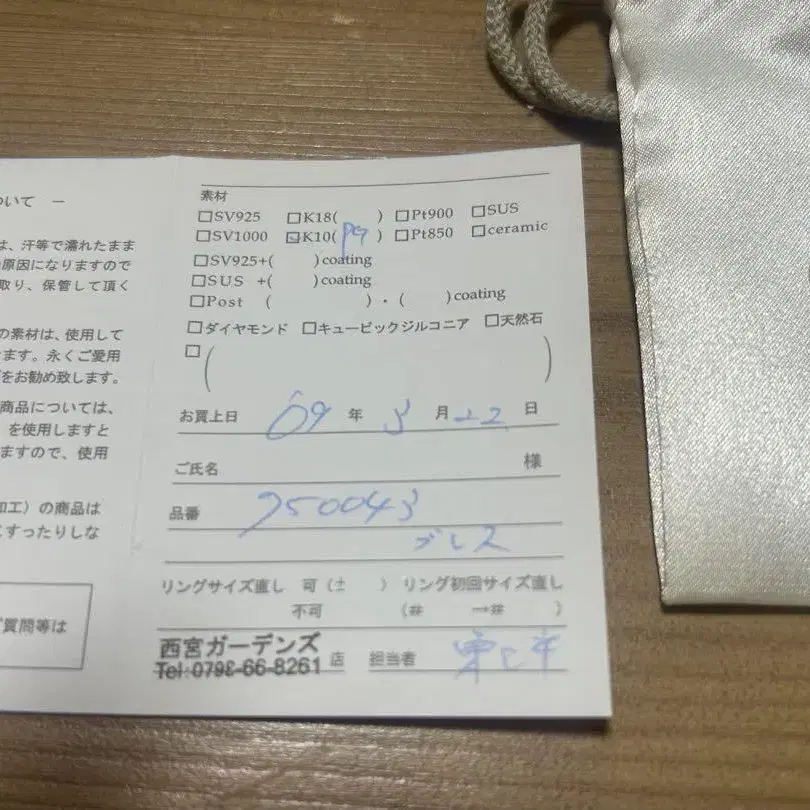 ついて ー
は、汗等で濡れたまま
原因になりますので
取り、保管して頂く
の素材は、使用して
ます。永くご愛用
をお勧め致します。
商品については、
を使用しますと
ますので、使用
加工）の商品は
こすったりしな
質問等は
素材
□SV925 □K18( ) □Pt900 □SUS
□SV1000 ☑K10(PG) □Pt850 □ceramic
□SV925+( )coating
□SUS +( )coating
□Post ( )・( )coating
□ダイヤモンド □キュービックジルコニア □天然石
□( )
お買上日 09 年 3 月 22 日
ご氏名 様
品番 750043
ブレス
リングサイズ直し 可(± ) リング初回サイズ直し
不可 (# →# )
西宮ガーデンズ
Tel:0798-66-8261 店 担当者